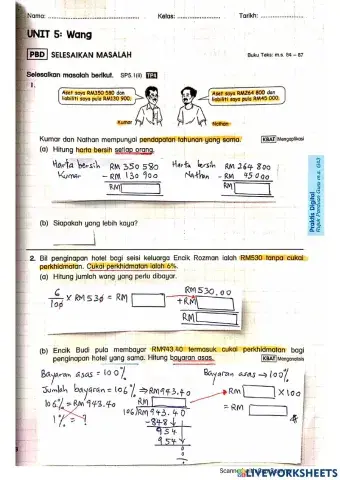 Nama:
Kelas:
Tarikh:
UNIT 5: Wang
PBD SELESAIKAN MASALAH
Buku Teks: m.s. 84 – 87
Selesaikan masalah berikut. SP5.1(ii) TP4
1.
Aset saya RM350 580 dan
liabiliti saya pula RM130 900.
Aset saya RM264 800 dan
liabiliti saya pula RM45 000.
Kumar
Nathan
Kumar dan Nathan mempunyai pendapatan tahunan yang sama. KBAT Mengaplikasi
(a) Hitung harta bersih setiap orang.
Harta bersih RM 350 580
Kumar - RM 130 900
RM
Harta bersih RM 264 800
Nathan - RM 45 000
RM
(b) Siapakah yang lebih kaya?
Praktis Digital
2. Bil penginapan hotel bagi seisi keluarga Encik Rozman ialah RM530 tanpa cukai
perkhidmatan. Cukai perkhidmatan ialah 6%.
(a) Hitung jumlah wang yang perlu dibayar.
6/100 × RM 530 = RM
RM530.00
+RM
RM
(b) Encik Budi pula membayar RM943.40 termasuk cukai perkhidmatan bagi
penginapan hotel yang sama. Hitung bayaran asas. KBAT Menganalisis
Bayaran asas = 100%
Jumlah bayaran = 106% ⇒ RM943.40
106% = RM943.40
1% = ?
RM
106/RM943.40
-848↓
954
954↓
0
0
Bayaran asas → 100%
RM × 100
= RM
LIVEWORKSHEETS